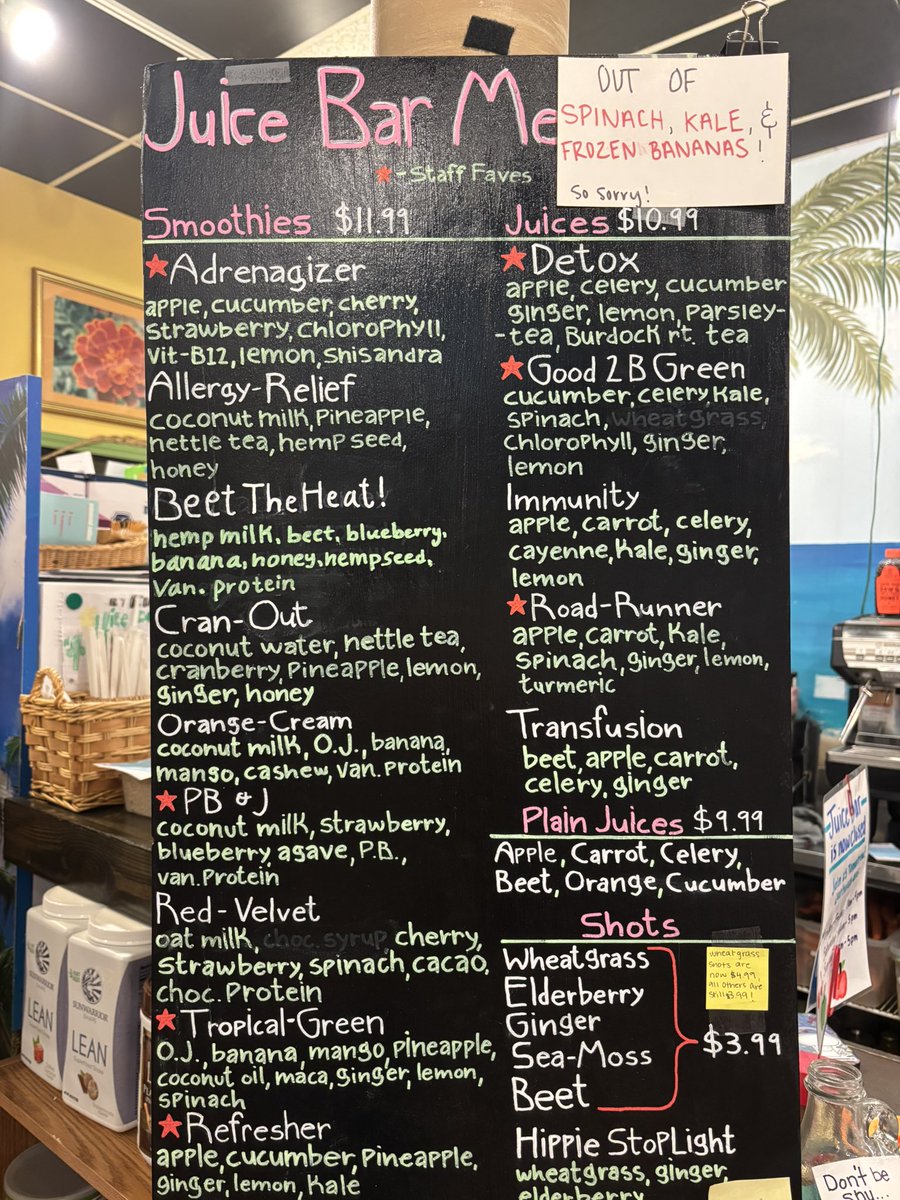 Juice Bar Me
OUT OF
SPINACH, KALE, &
FROZEN BANANAS!
So sorry!
★-Staff Faves
Smoothies $11.99
★Adrenagizer
apple, cucumber, cherry,
strawberry, chlorophyll,
Vit-B12, lemon, shisandra
Allergy-Relief
coconut milk, pineapple,
nettle tea, hemp seed,
honey
Beet The Heat!
hemp milk, beet, blueberry,
banana, honey, hempseed,
Van. protein
Cran-Out
coconut water, nettle tea,
cranberry, pineapple, lemon,
ginger, honey
Orange-Cream
coconut milk, O.J., banana,
mango, cashew, van. protein
★PB & J
coconut milk, strawberry,
blueberry, agave, P.B.,
van. protein
Red-Velvet
oat milk, choc. syrup, cherry,
strawberry, spinach, cacao,
choc. protein
★Tropical-Green
O.J., banana, mango, pineapple,
coconut oil, maca, ginger, lemon,
spinach
★Refresher
apple, cucumber, pineapple,
ginger, lemon, kale
Juices $10.99
★Detox
apple, celery, cucumber
ginger, lemon, parsley-
-tea, Burdock rt. tea
★Good 2 B Green
cucumber, celery, kale,
spinach, wheatgrass,
chlorophyll, ginger,
lemon
Immunity
apple, carrot, celery,
cayenne, kale, ginger,
lemon
★Road-Runner
apple, carrot, kale,
spinach, ginger, lemon,
turmeric
Transfusion
beet, apple, carrot,
celery, ginger
Plain Juices $9.99
Apple, Carrot, Celery,
Beet, Orange, Cucumber
Shots
Wheatgrass
Elderberry
Ginger
Sea-Moss
Beet
$3.99
wheatgrass
shots are
now $4.99,
all others are
still 3.99!
Hippie StopLight
wheatgrass, ginger,
elderberry
Juice Bar
is now closed
SUNWARRIOR
LEAN
SUNWARRIOR
LEAN
iji
Don't be
shy...